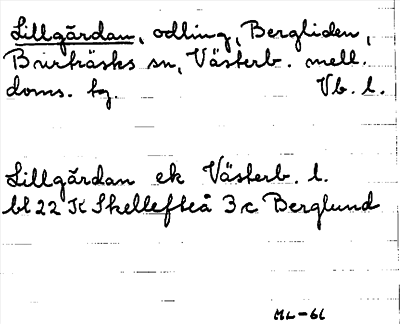 Lillgårdan, odling, Bergliden,
Burträsks sn, Västerb. mell.
doms. tg. Vb. l.
Lillgårdan ek Västerb. l.
bl 22 K Skellefteå 3c Berglund
ML-61